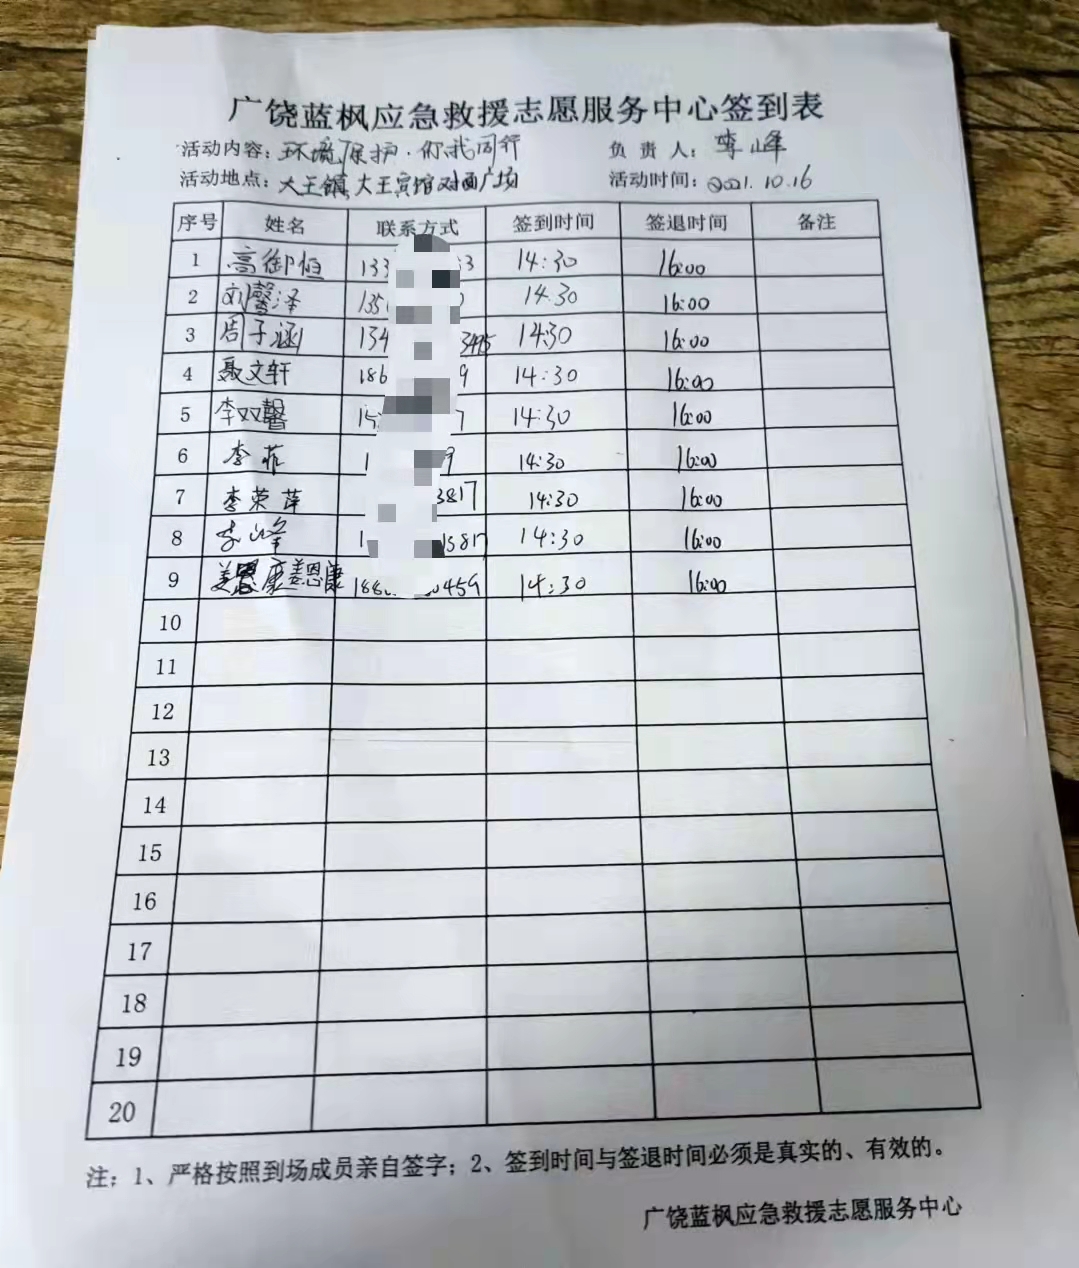 广饶蓝枫应急救援志愿服务中心签到表
活动内容：环境保护·你我同行 负责人：李峰
活动地点：大王镇大王宾馆对面广场 活动时间：2021.10.16
序号 姓名 联系方式 签到时间 签退时间 备注
1 高御恒 133 33 14:30 16:00
2 刘馨泽 135 14:30 16:00
3 周子涵 134 3495 14:30 16:00
4 聂文轩 186 9 14:30 16:00
5 李双馨 15 7 14:30 16:00
6 李菲 1 9 14:30 16:00
7 李荣萍 3817 14:30 16:00
8 李峰 1 5817 14:30 16:00
9 姜恩康 188 0459 14:30 16:00
10
11
12
13
14
15
16
17
18
19
20
注：1、严格按照到场成员亲自签字；2、签到时间与签退时间必须是真实的、有效的。
广饶蓝枫应急救援志愿服务中心